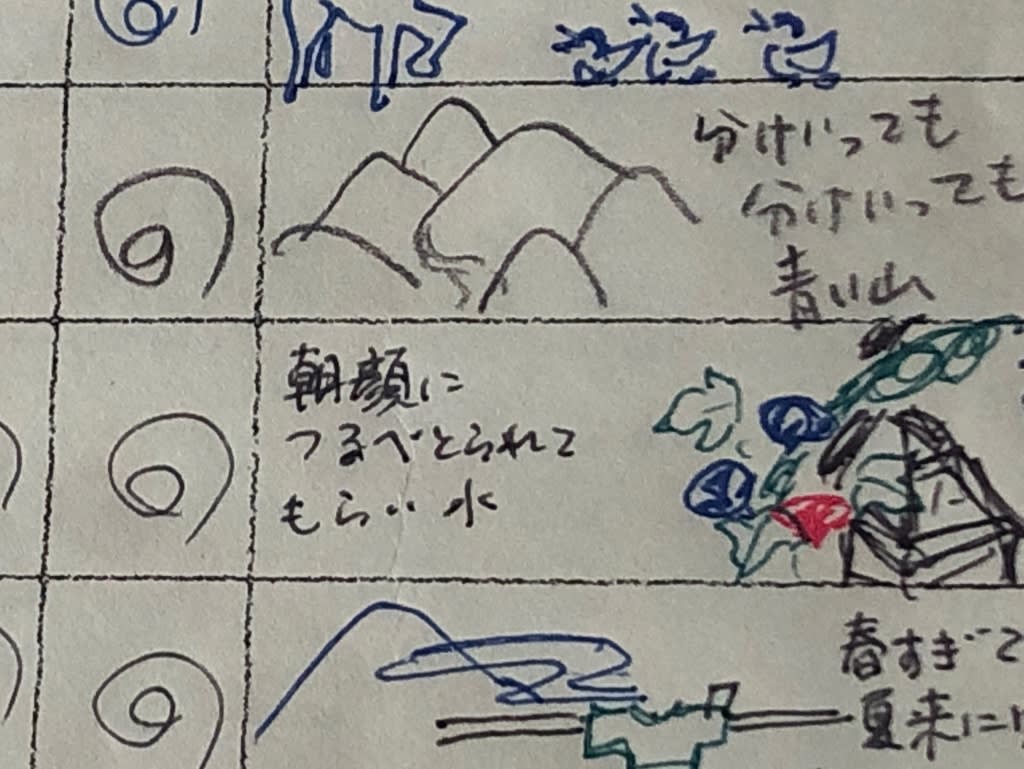 分けいっても
分けいっても
青い山
朝顔に
つるべとられて
もらい水
春すぎて
夏来に